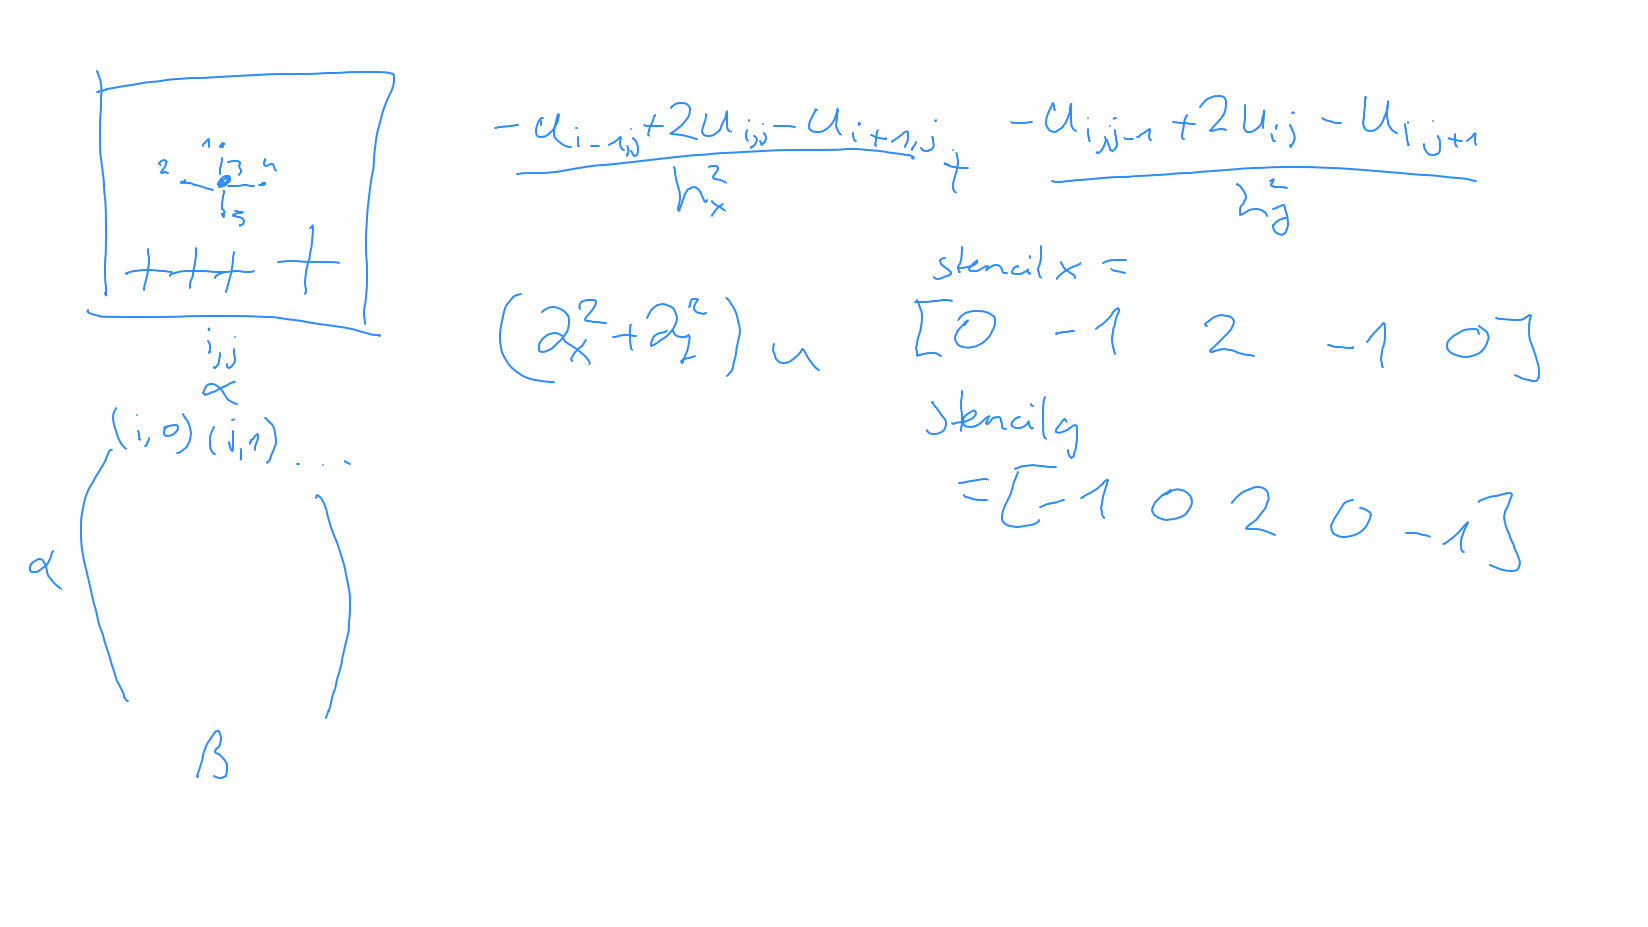 1 2 3 4 5
i,j
α
(i,0) (j,1) ...
α
β
(-u_{i-1,j}+2u_{i,j}-u_{i+1,j})/h_x^2 + (-u_{i,j-1}+2u_{ij}-u_{i j+1})/h_y^2
(∂_x^2+∂_y^2) u
stencil x =
[0 -1 2 -1 0]
stencil y
= [-1 0 2 0 -1]